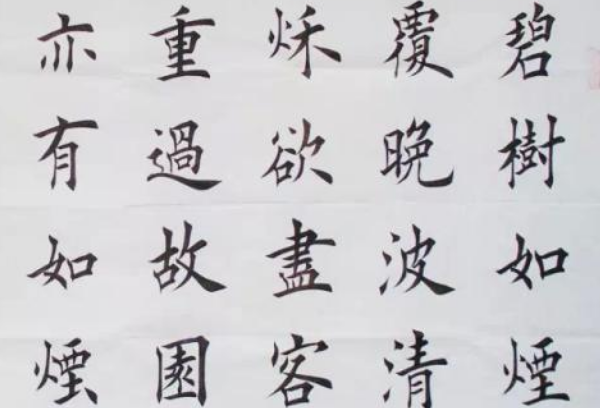 碧樹如煙
覆晚波清
秌欲盡客
重過故園
亦有如煙